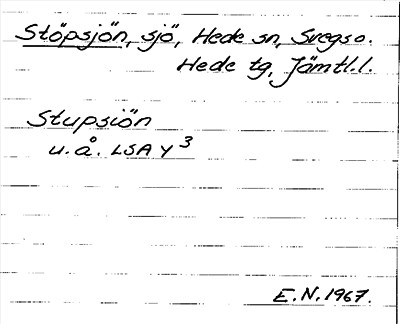 Stöpsjön, sjö, Hede sn, Svegs o.
Hede tg, Jämtl.l.
Stupsiön
u.å. LSA Y 3
E.N. 1967.